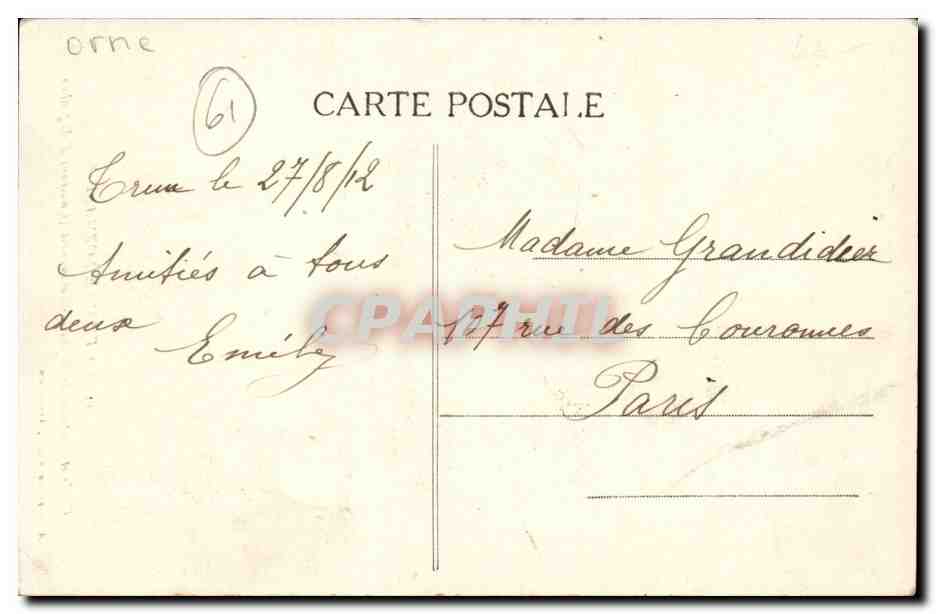 orne
61
CARTE POSTALE
Trun le 27/8/12
Amitiés à tous
deux
Emile
Madame Grandidier
107 rue des Couronnes
Paris
CPAPHIL